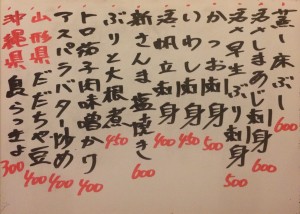 蒸し床ぶし 600
活〆しまあじ刺身 600
活〆早生ぶり刺身 500
かつお刺身 500
いわし刺身 400
活帆立刺身 450
新さんま塩焼き 600
ぶりと大根煮 450
トロ茄子肉味噌かけ 400
アスパラバター炒め 400
山形県だだちゃ豆 400
沖縄県島らっきょ 300